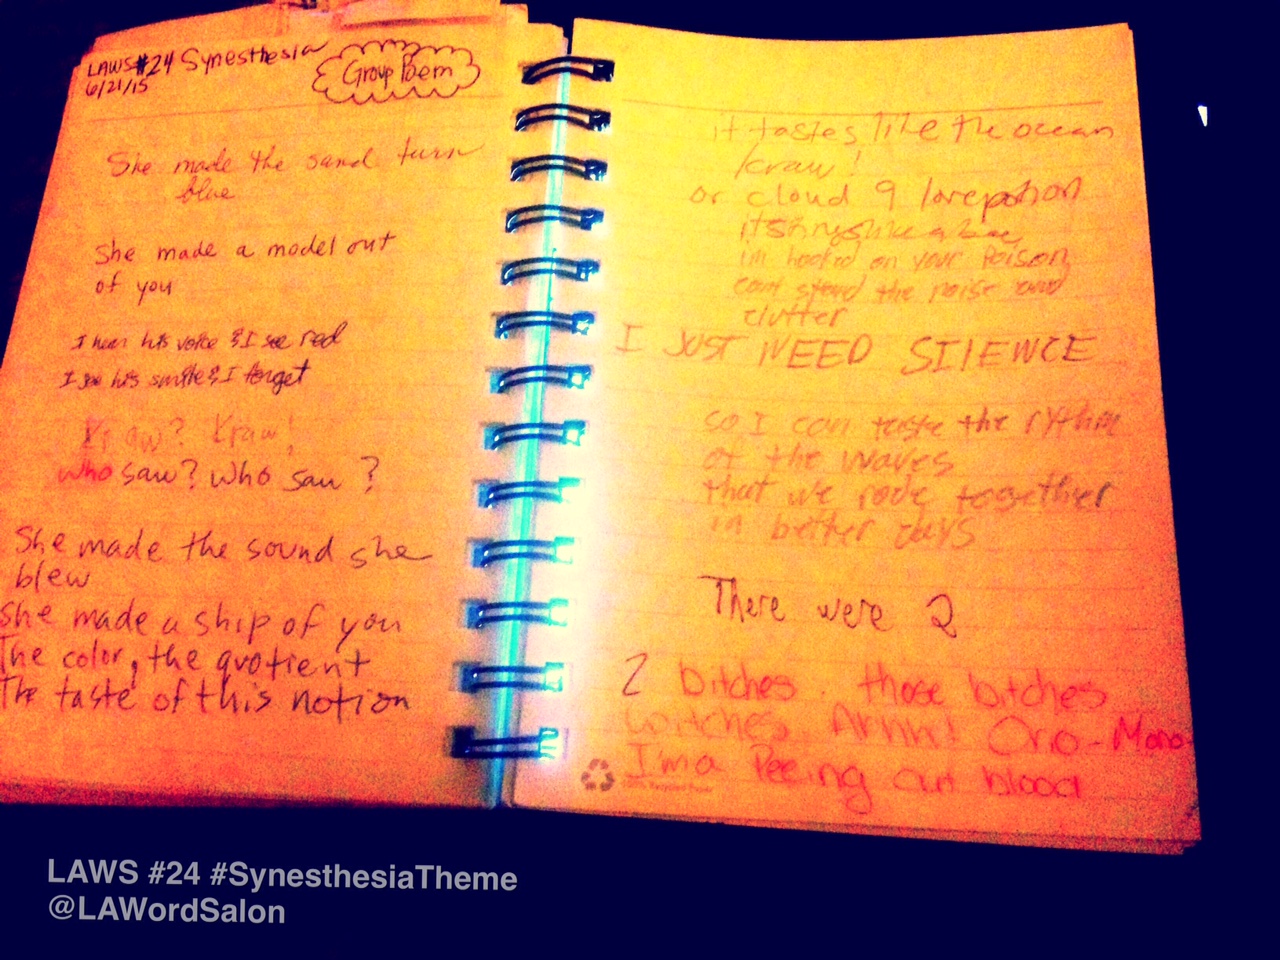 LAWS#24 Synesthesia
6/21/15
Group Poem
She made the sand turn
blue
She made a model out
of you
I hear his voice & I see red
I see his smile & I forget
Kraw? Kraw!
who saw? Who saw?
She made the sound she
blew
She made a ship of you
The color, the quotient
The taste of this notion
it tastes like the ocean
kraw!
or cloud 9 lovepotion
like a
im hooked on your Poison
cant stand the noise and
clutter
I JUST NEED SILENCE
so I can taste the rythm
of the waves
that we rode together
in better days
There were 2
2 bitches. those bitches
witches. Orio-Mono
I'm a Peeing out blood
100% Recycled Paper
LAWS #24 #SynesthesiaTheme
@LAWordSalon